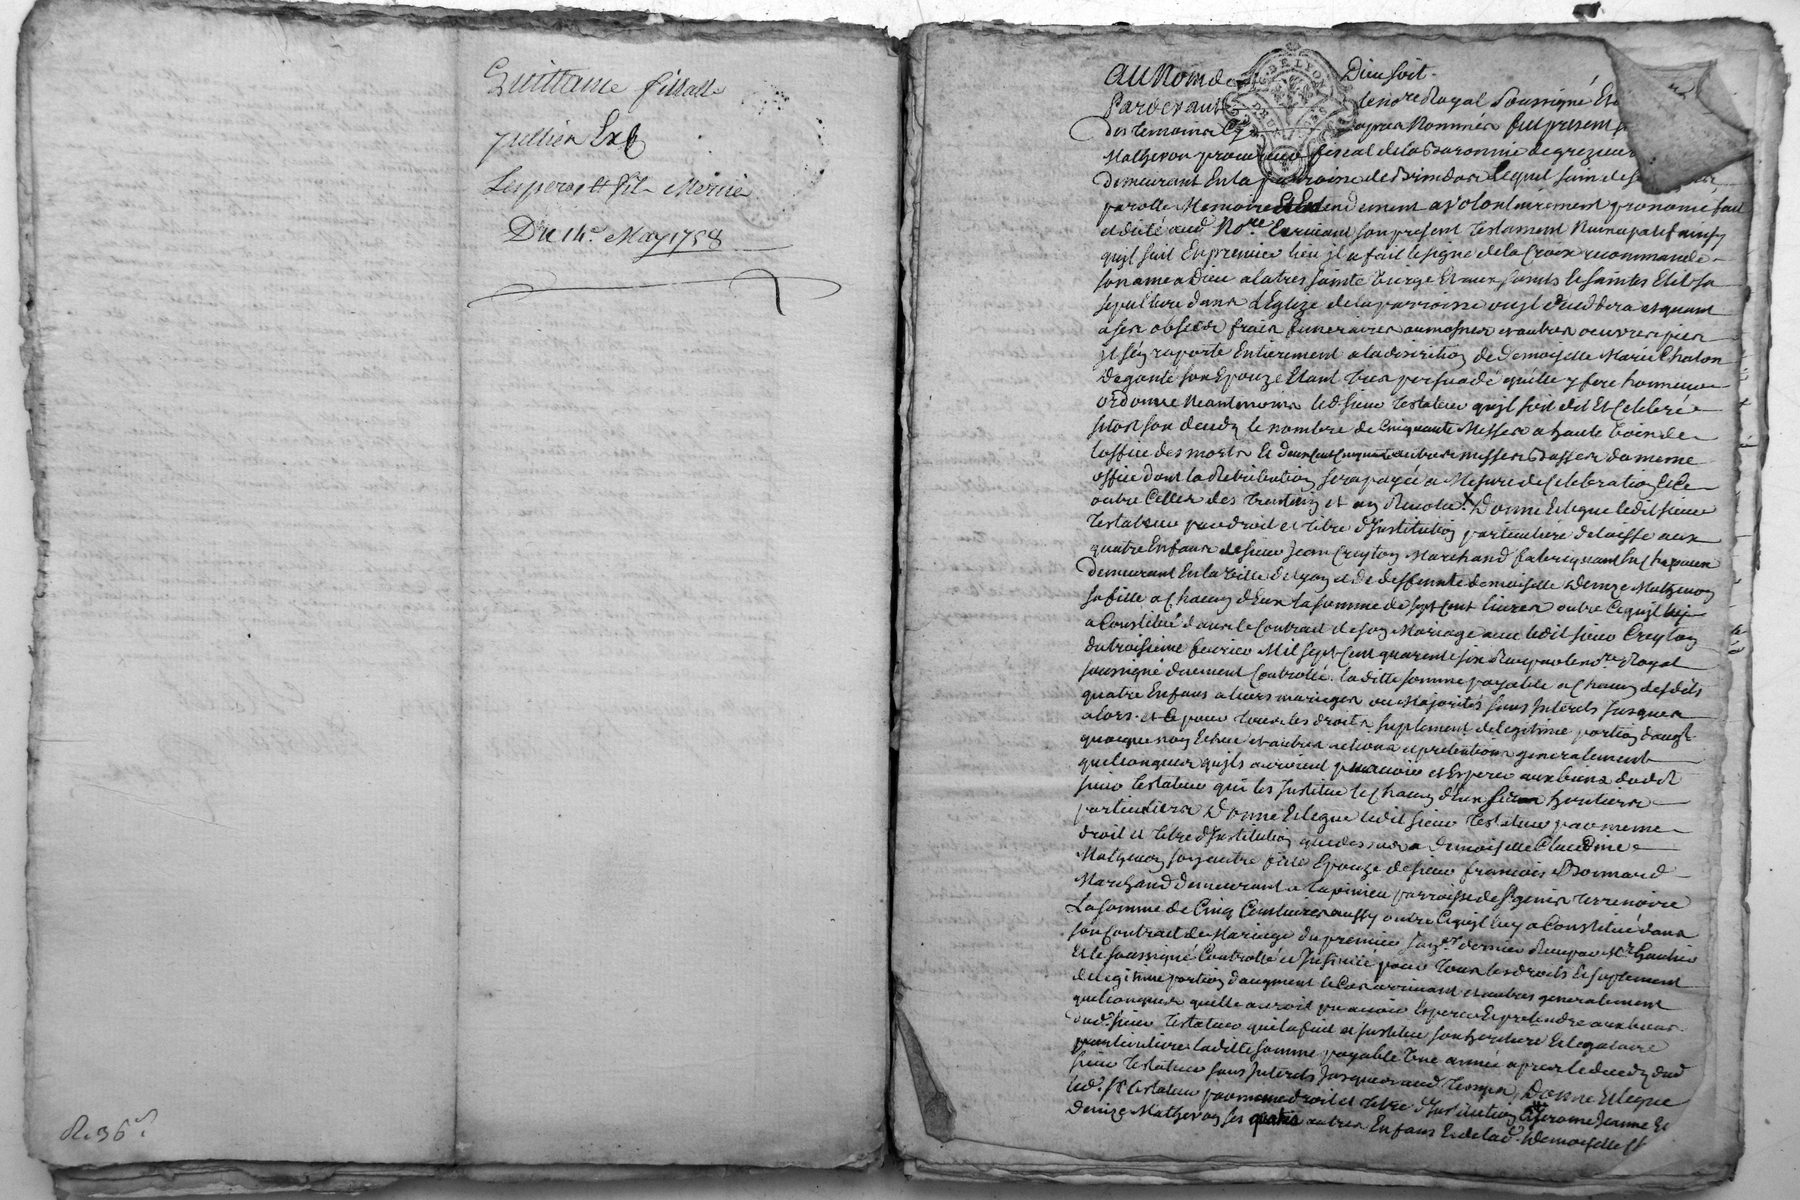 Quittance
Jullien
Du 14e. May 1758
R. 36 s.
AU Nom de Dieu soit.
Pardevant le nore Royal Soussigné Et
des temoins Cy apres Nommés fut present
Matheron procureur fiscal de la Baronnie de grezieu
Demeurant En la parroisse de Lequel sain de
parolle Memoire Et Entendement a Volontairement prononcé
et dicté aud. Nore. Ecrivant son present testament Nuncupatif ainsy
quil suit En premier lieu il a fait le signe de la Croix recommandé
son ame a Dieu a la tres sainte Vierge Et aux saints Et saintes Et Elû sa
sepulture dans L'Eglize de la parroisse ou il decedera et quant
a ses obseques frais funeraires aumosnes et autres oeuvres pies
il s'en raporte Entierement a la discrition de Demoiselle Marie Chalon
Dagonté son Epouze Etant tres persuadé qu'elle y fera honneur
ordonne Neantmoins led. sieur testateur quil soit dit Et Celebré
sitost son deceds le nombre de Cinquante Messes a haute Voix de
l'office des morts Et deux Cent Cinquante autres messes Basses du meme
office dont la Retribution sera payée a Mesure de Celebration Et Ce
outre Celles des Donne Et legue ledit sieur
testateur par droit et titre d'Institution particuliere delaisse aux
quatre Enfans de sieur Jean Creyton Marchand fabriquant En Chapeaux
Demeurant En la Ville de Lyon et de deffunte demoiselle Denize Matheron
sa fille a Chacun d'Eux la somme de sept Cent livres outre Ce quil luy
a Constitué dans le Contrat de son Mariage avec ledit sieur Creyton
du troisieme fevrier Mil sept Cent quarente six Reçu par le nore Royal
soussigné duement Controllé. laditte somme payable a Chacun desdits
quatre Enfans a leurs mariages ou Majorités sans Interets Jusques
alors. et Ce pour tous les droits suplement de legitime portion d'augt
quoique non Echue et autres actions et pretentions generalement
quelconques quils auroient pu avoir et Esperer aux biens dudit
sieur testateur qui les Institue Et Chacun d'Eux ses heritiers
particuliers Donne Et legue ledit sieur testateur par meme
droit et titre d'Institution que dessus a Demoiselle Claudine
Matheron son autre fille Epouze de sieur françois Bonnard
Marchand demeurant a parroisse de St genis terrenoire
La somme de Cinq Cent livres aussy outre Ce quil luy a Constitué dans
son Contrat de Mariage du premier Janvr dernier Reçu par Me.
Et le soussigné Controllé et Insinué pour tous les droits Et suplement
de legitime portion d'augment le Cas arrivant et autres generalement
quelconques quelle auroit pu avoir Esperer Et pretendre aux biens
dud. sieur testateur qui la fait et Institue son heritiere Et legataire
particuliere laditte somme payable Une année apres le deceds dud.
sieur testateur sans Interets Jusques aud. temps, Donne Et legue
led. sr testateur par meme droit et titre d'Institution a Jerome Jeanne Et
Denize Matheron ses autres Enfans Et de lad. Demoiselle